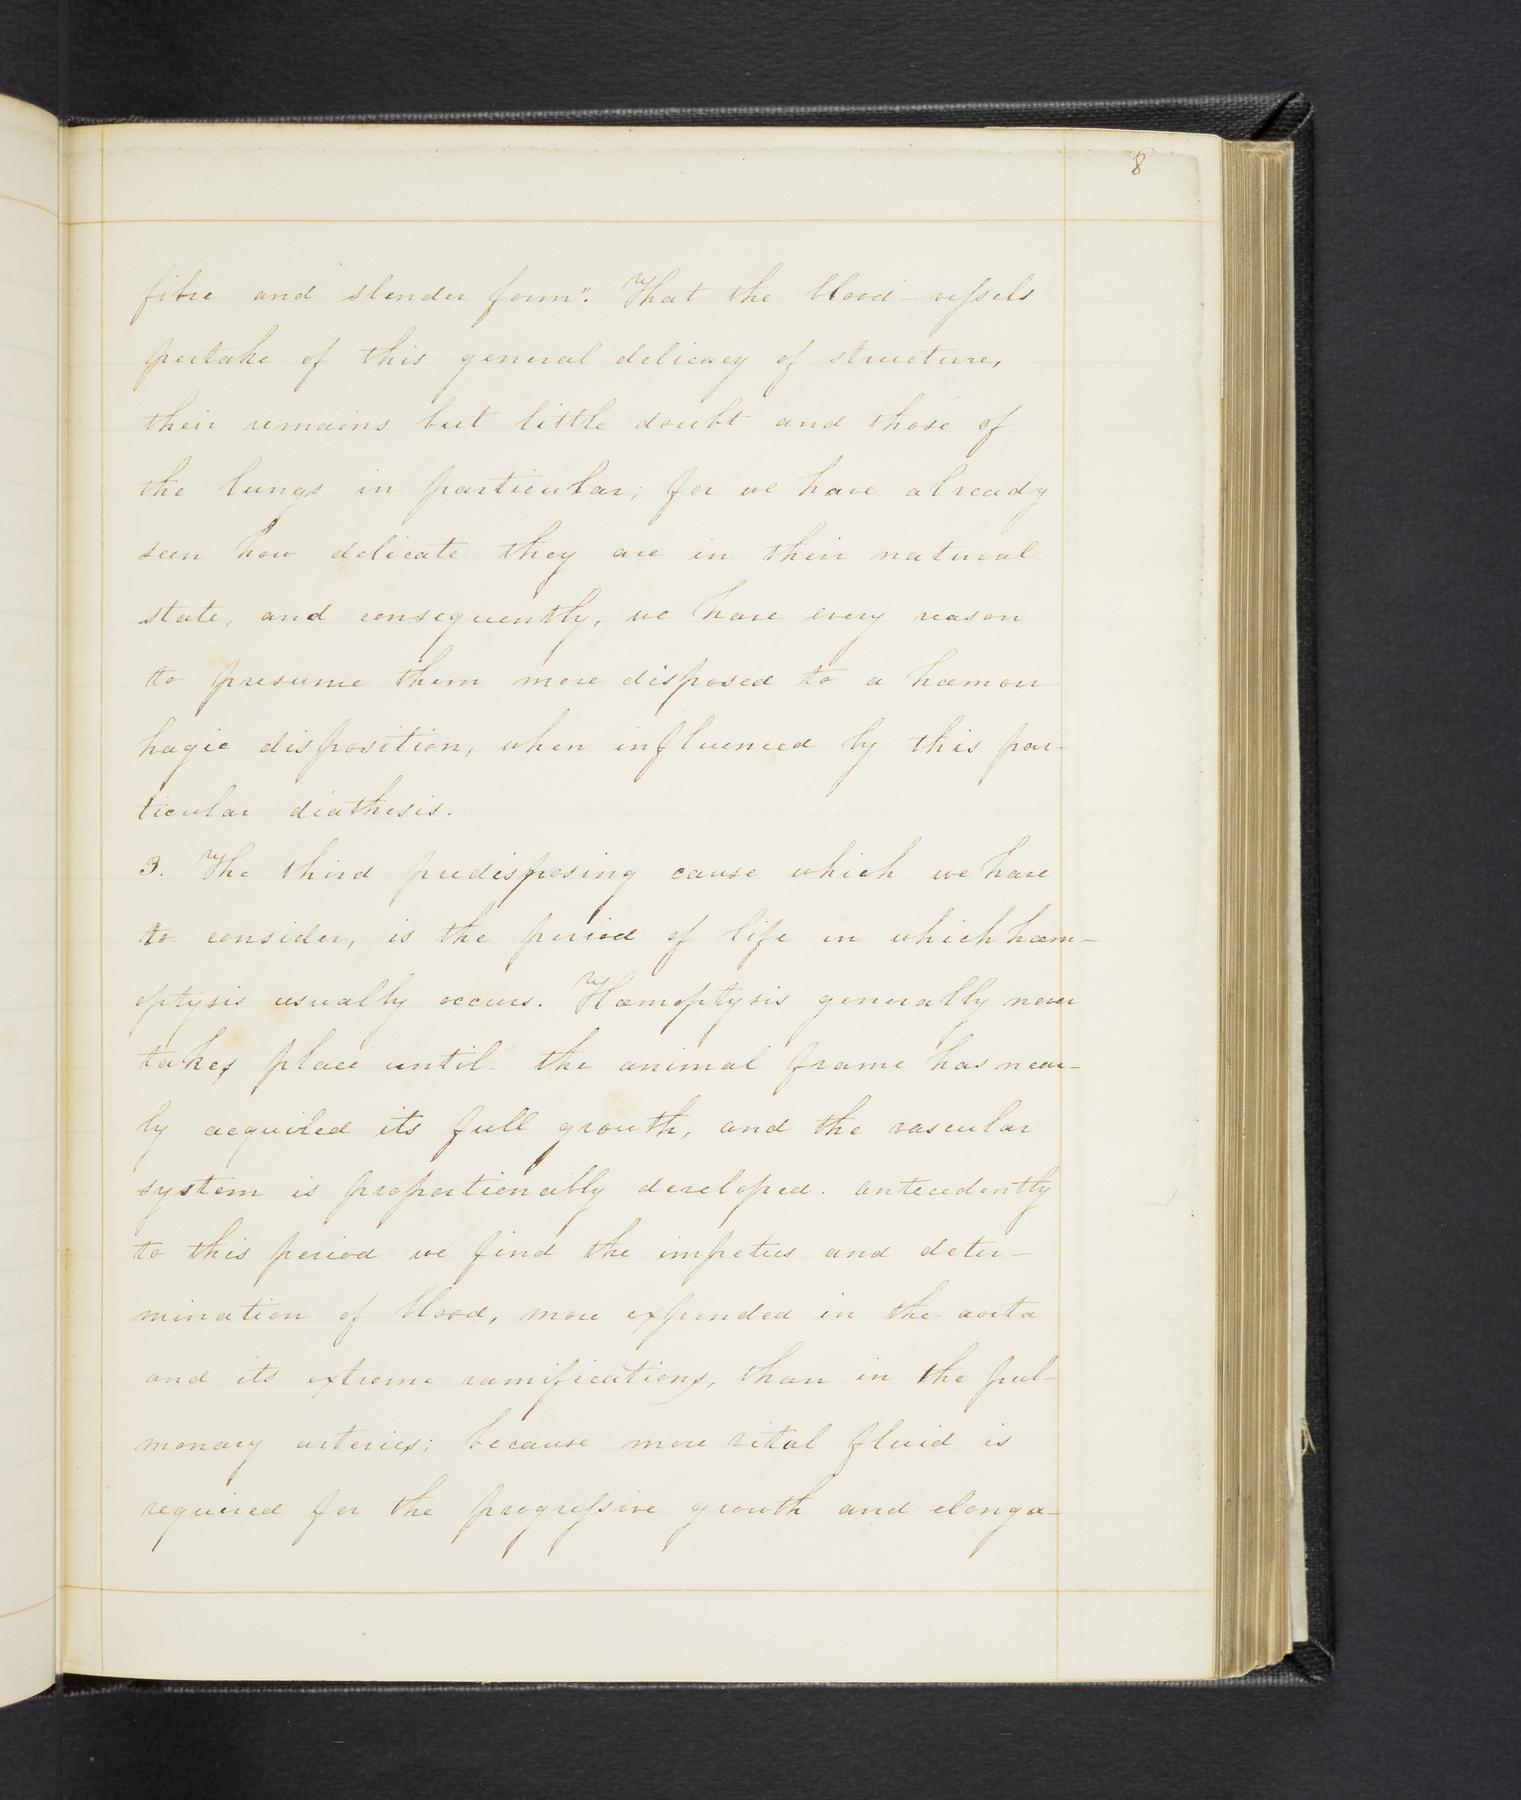 8
fibre and slender form". That the blood-vessels
pertake of this general delicacy of structure,
their remains but little doubt and those of
the lungs in particular; for we have already
seen how delicate they are in their natural
state, and consequently, we have every reason
to presume them more disposed to a hæmorr-
hagic disposition, when influenced by this par-
ticular diathesis.
3. The third predisposing cause which we have
to consider, is the period of life in which hæm-
optysis usually occurs. Hæmoptysis generally never
takes place until the animal frame has near-
ly acquired its full growth, and the vascular
system is proportionably developed. antecedently
to this period we find the impetus and deter-
mination of blood, more expended in the aorta
and its extreme ramifications, than in the pul-
monary arteries; because more vital fluid is
required for the progressive growth and elonga-